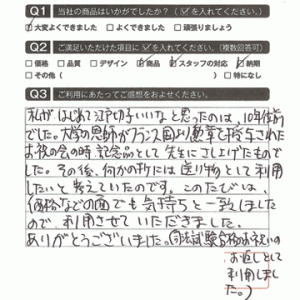 Q1 当社の商品はいかがでしたか？(✓を入れてください。)
☑大変よくできました □よくできました □頑張りましょう
Q2 ご満足いただけた項目に✓を入れてください。(複数回答可)
□価格 □品質 □デザイン ☑商品 ☑スタッフの対応 ☑納期
□その他( ) □特になし
Q3 ご利用にあたってご感想をおよせください。
私がはじめて江戸切子いいなと思ったのは、10年位前
でした。大学の恩師がフランス国より勲章を授与された
お祝の会の時、記念品として先生にさし上げたもので
した。その後、何かの折には送り物として利用
したいと考えていたのです。このたびは、
価格などの面でも気持ちと一致しました
ので利用させていただきました。
ありがとうございました。(司法試験合格のお祝いの
お返しとして
利用しまし
た。)